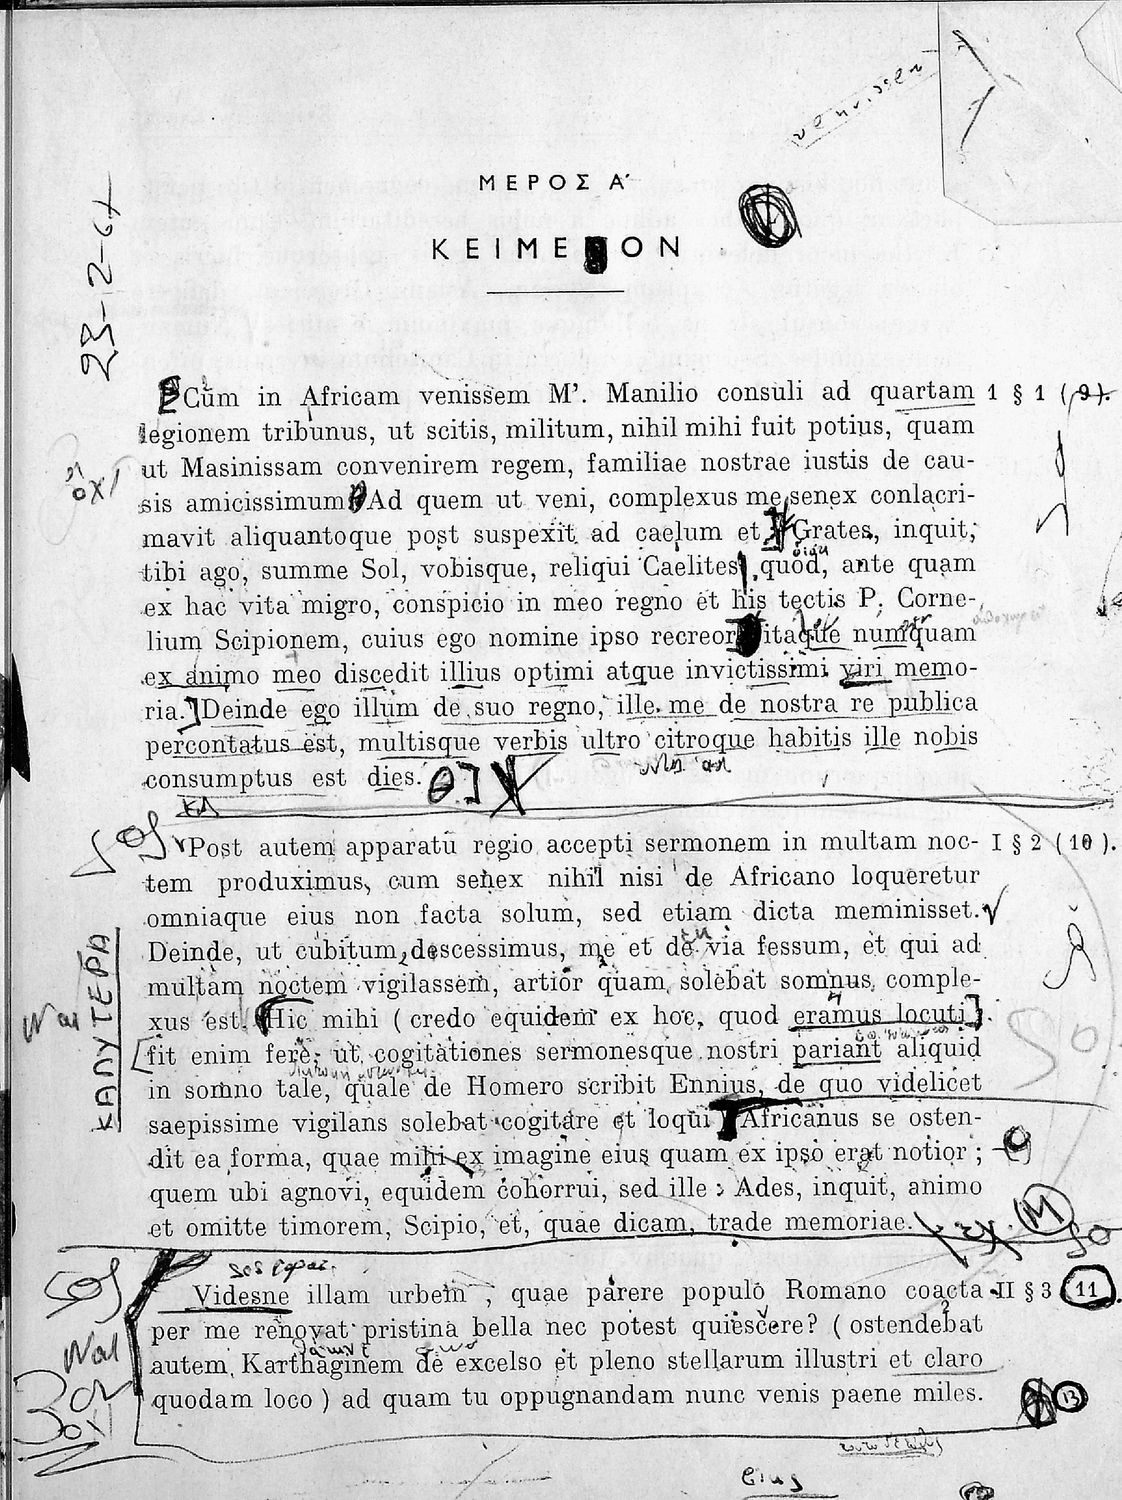 venissem
ΜΕΡΟΣ Α΄
23-2-67
ΚΕΙΜΕΝΟΝ
Cum in Africam venissem M’. Manilio consuli ad quartam 1 § 1 (9).
legionem tribunus, ut scitis, militum, nihil mihi fuit potius, quam
ut Masinissam convenirem regem, familiae nostrae iustis de cau-
οχι
sis amicissimum. Ad quem ut veni, complexus me senex conlacri-
mavit aliquantoque post suspexit ad caelum et, Grates, inquit,
tibi ago, summe Sol, vobisque, reliqui Caelites, quod, ante quam
ex hac vita migro, conspicio in meo regno et his tectis P. Corne-
lium Scipionem, cuius ego nomine ipso recreor itaque numquam
ex animo meo discedit illius optimi atque invictissimi viri memo-
ria.] Deinde ego illum de suo regno, ille me de nostra re publica
percontatus est, multisque verbis ultro citroque habitis ille nobis
consumptus est dies. Θ]
Post autem apparatu regio accepti sermonem in multam noc- I § 2 (10).
tem produximus, cum senex nihil nisi de Africano loqueretur
omniaque eius non facta solum, sed etiam dicta meminisset.
Deinde, ut cubitum descessimus, me et de via fessum, et qui ad
multam noctem vigilassem, artior quam solebat somnus, comple-
xus est. Hic mihi ( credo equidem ex hoc, quod eramus locuti].
ΚΑΛΥΤΕΡΑ
Ναι
[fit enim fere, ut cogitationes sermonesque nostri pariant aliquid
in somno tale, quale de Homero scribit Ennius, de quo videlicet
saepissime vigilans solebat cogitare et loqui Africanus se osten-
dit ea forma, quae mihi ex imagine eius quam ex ipso erat notior ;
quem ubi agnovi, equidem cohorrui, sed ille : Ades, inquit, animo
et omitte timorem, Scipio, et, quae dicam, trade memoriae.
Μ
Videsne illam urbem , quae parere populo Romano coacta II § 3 11.
per me renovat pristina bella nec potest quiescere? ( ostendebat
Ναι
autem Karthaginem de excelso et pleno stellarum illustri et claro
quodam loco ) ad quam tu oppugnandam nunc venis paene miles.
13
οχι
Eius